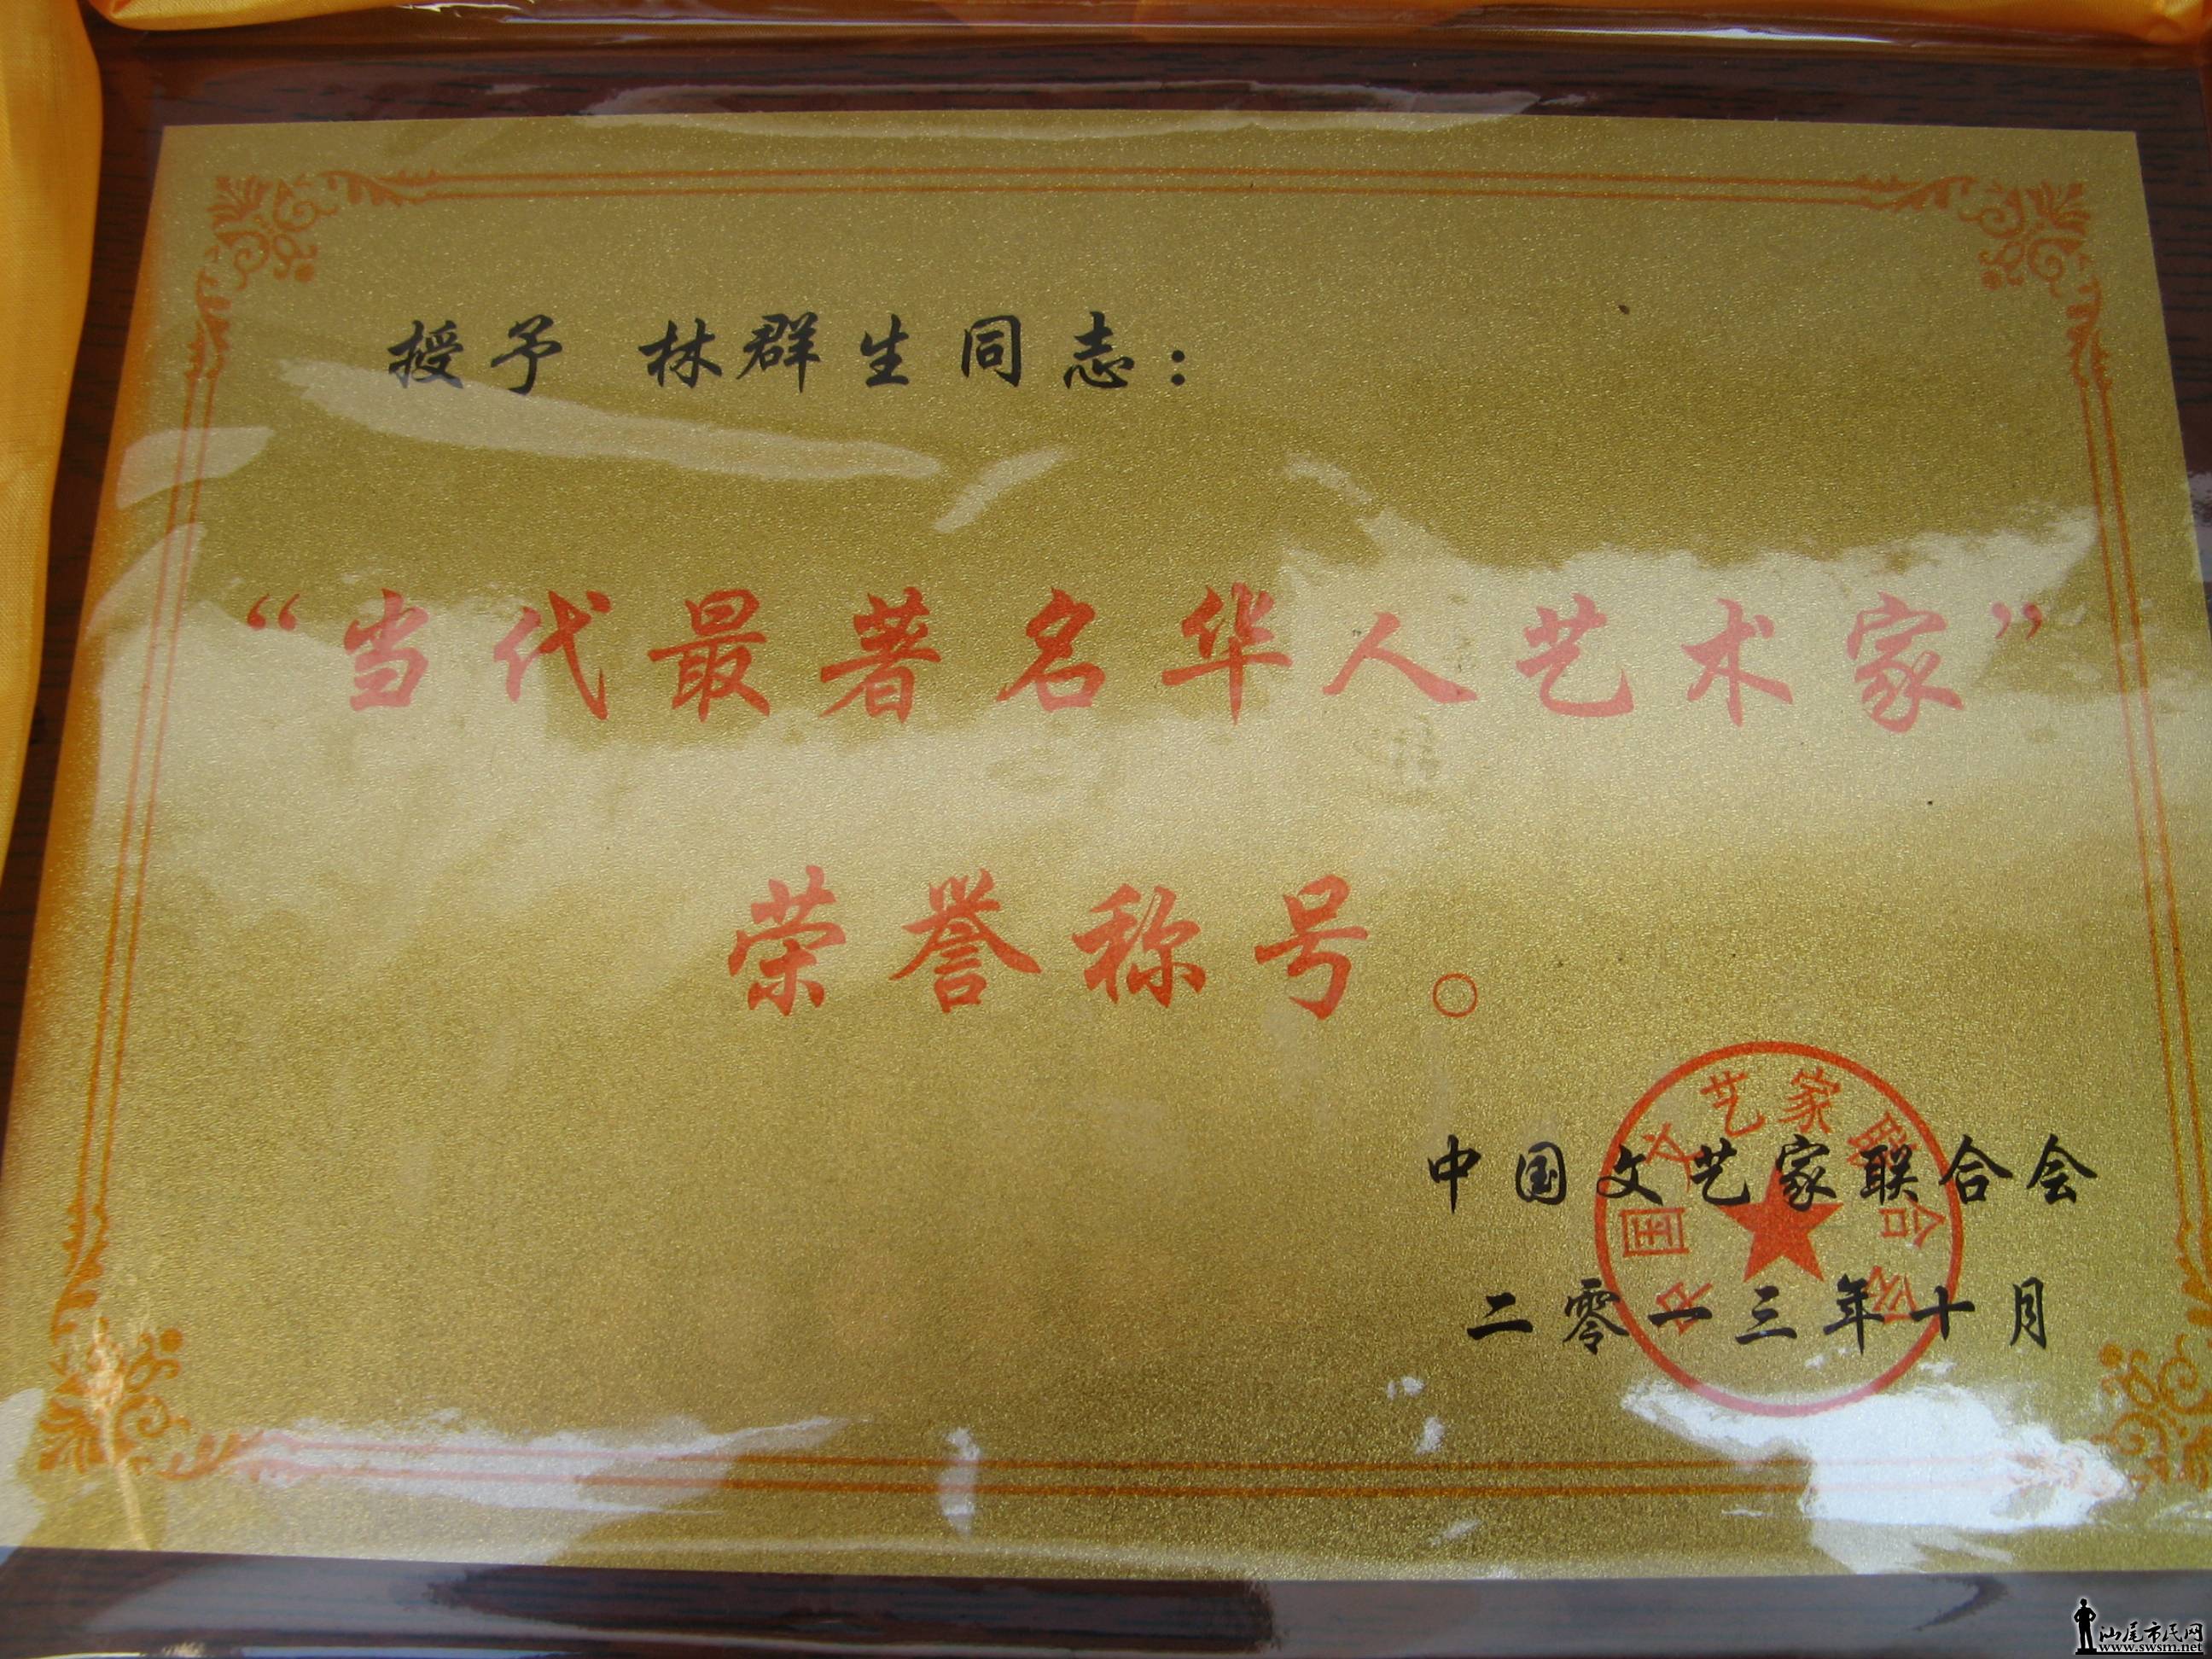 授予 林群生同志：
“当代最著名华人艺术家”
荣誉称号。
中国文艺家联合会
中国文艺家联合会
二零一三年十月
汕尾市民网
www.swsm.net